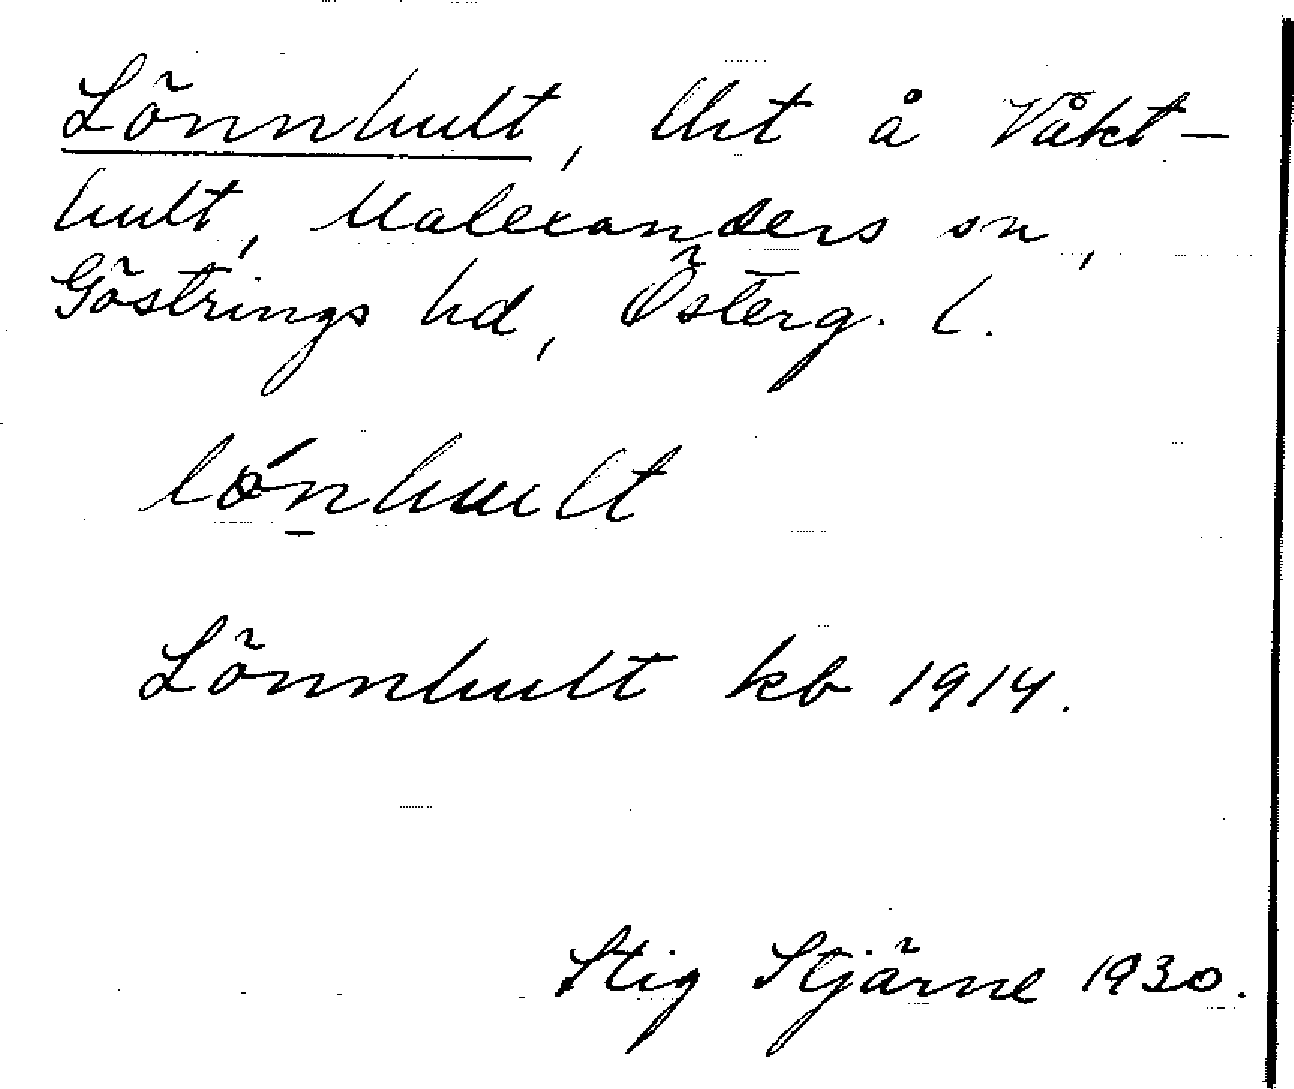 Lönnhult, lht å Våkt-
hult, Malexanders sn,
Göstrings hd, Österg. l.
lǿn̲hult
Lönnhult kb 1914.
Stig Stjärne 1930.